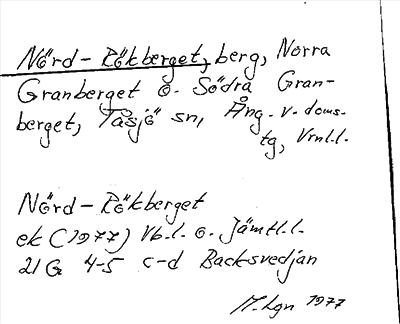 Nörd-Rökberget, berg, Norra
Granberget o. Södra Gran-
berget, Tåsjö sn, Ång. v. doms.
tg, Vrnl.l.
Nörd-Rökberget
ek (1977) Vb.l. o. Jämtl.l.
21 G 4-5 c-d Backsvedjan
M. Lgn 1977